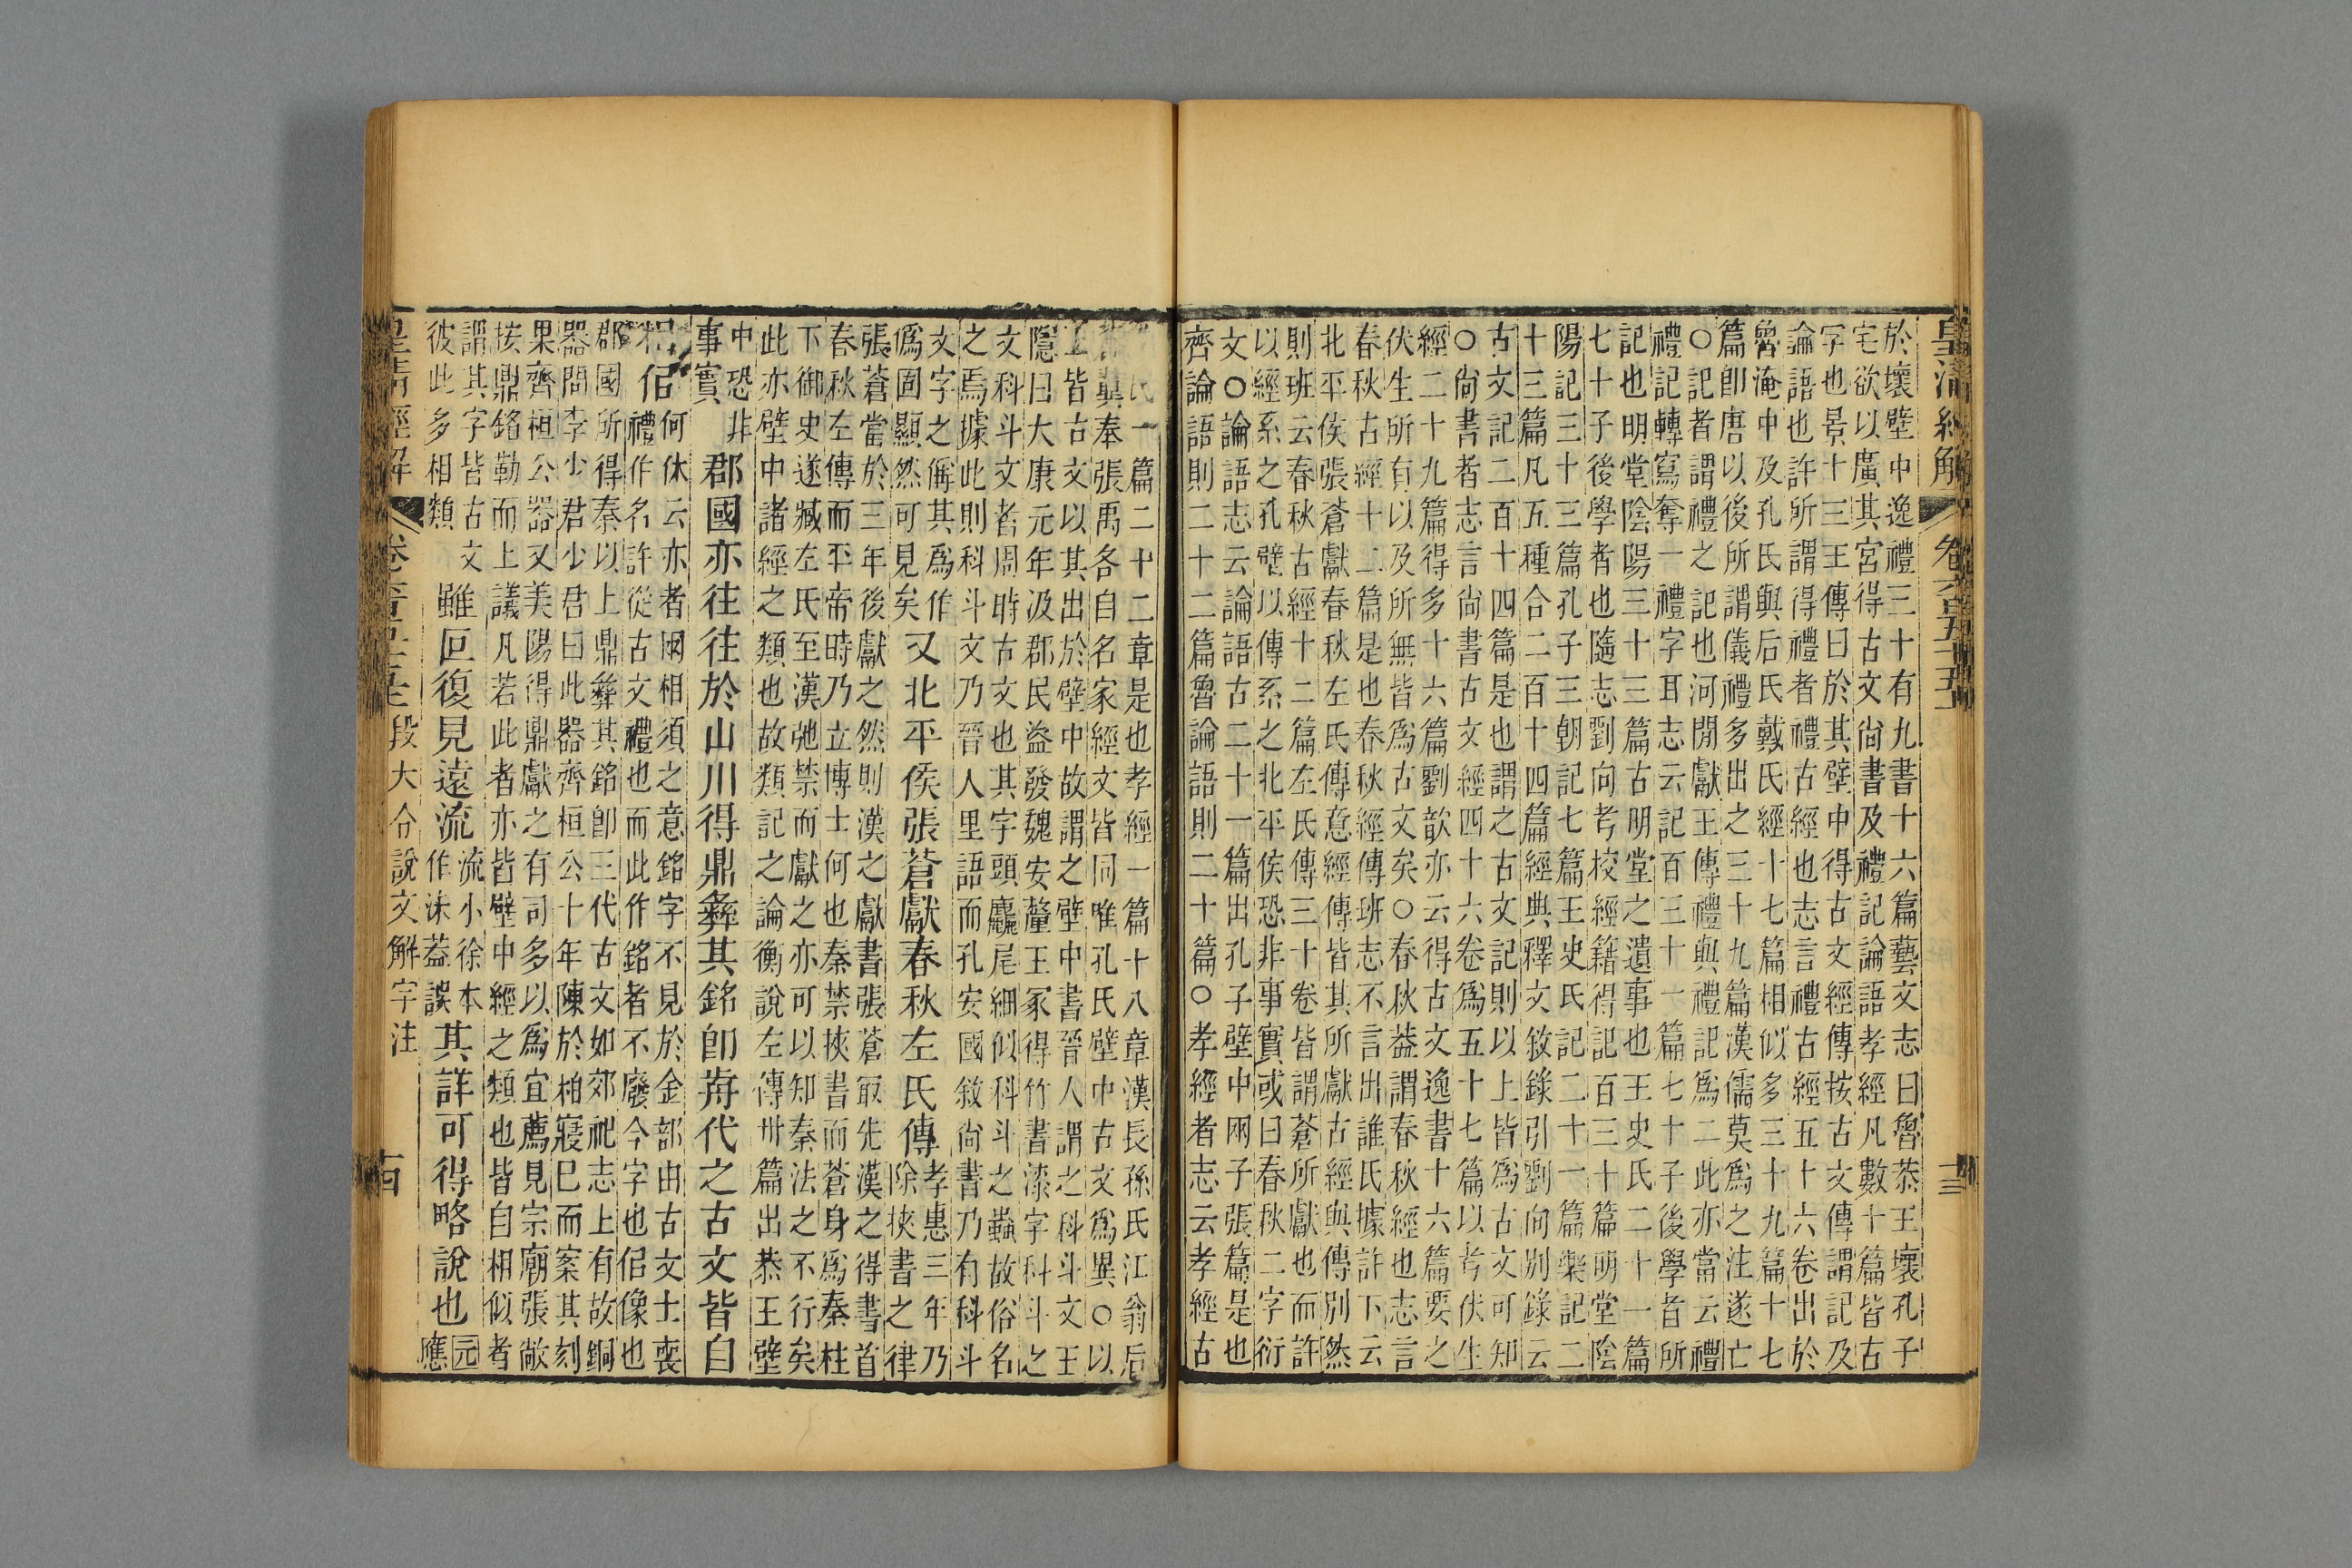 皇清經解 卷六百五十五 十三
於壞壁中逸禮三十有九書十六篇藝文志曰魯恭王壞孔子
宅欲以廣其宮得古文尙書及禮記論語孝經凡數十篇皆古
字也景十三王傳曰於其壁中得古文經傳按古文傳謂記及
論語也許所謂得禮者禮古經也志言禮古經五十六卷出於
魯淹中及孔氏與后氏戴氏經十七篇相似多三十九篇十七
篇卽唐以後所謂儀禮多出之三十九篇漢儒莫爲之注遂亡
○記者謂禮之記也河閒獻王傳禮與禮記爲二此亦當云禮
禮記轉寫奪一禮字耳志云記百三十一篇七十子後學者所
記也明堂陰陽三十三篇古明堂之遺事也王史氏二十一篇
七十子後學者也隨志劉向考校經籍得記百三十篇明堂陰
陽記三十三篇孔子三朝記七篇王史氏記二十一篇樂記二
十三篇凡五種合二百十四篇經典釋文敘錄引劉向別錄云
古文記二百十四篇是也謂之古文記則以上皆爲古文可知
○尙書者志言尙書古文經四十六卷爲五十七篇以考伏生
經二十九篇得多十六篇劉歆亦云得古文逸書十六篇要之
伏生所有以及所無皆爲古文矣○春秋葢謂春秋經也志言
春秋古經十二篇是也春秋經傳班志不言出誰氏據許下云
北平侯張蒼獻春秋左氏傳意經傳皆其所獻古經與傳別然
則班云春秋古經十二篇左氏傳三十卷皆謂蒼所獻也而許
以經系之孔壁以傳系之北平侯恐非事實或曰春秋二字衍
文○論語志云論語古二十一篇出孔子壁中兩子張篇是也
齊論語則二十二篇魯論語則二十篇○孝經者志云孝經古
氏一篇二十二章是也孝經一篇十八章漢長孫氏江翁后
翼奉張禹各自名家經文皆同唯孔氏壁中古文爲異○以
上皆古文以其出於壁中故謂之壁中書晉人謂之科斗文王
隱曰大康元年汲郡民盜發魏安釐王冢得竹書漆字科斗之
文科斗文者周時古文也其字頭麤尾細似科斗之蟲故俗名
之焉據此則科斗文乃晉人里語而孔安國敘尙書乃有科斗
文字之偁其爲作
僞固顯然可見矣
又北平侯張蒼獻春秋左氏傳
孝惠三年乃
除挾書之律
張蒼當於三年後獻之然則漢之獻書張蒼㝡先漢之得書首
春秋左傳而平帝時乃立博士何也秦禁挾書而蒼身爲秦柱
下御史遂臧左氏至漢弛禁而獻之亦可以知秦法之不行矣
此亦壁中諸經之類也故類記之論衡說左傳卅篇出恭王壁
中恐非
事實
郡國亦往往於山川得鼎彝其銘卽歬代之古文皆自
相佀
何休云亦者兩相須之意銘字不見於金部由古文士喪
禮作名許從古文禮也而此作銘者不廢今字也佀像也
郡國所得秦以上鼎彝其銘卽三代古文如郊祀志上有故銅
器問李少君少君曰此器齊桓公十年陳於柏寢巳而案其刻
果齊桓公器又美陽得鼎獻之有司多以爲宜薦見宗廟張敞
按鼎銘勒而上議凡若此者亦皆壁中經之類也皆自相似者
謂其字皆古文
彼此多相類
雖叵復見遠流
流小徐本
作沬葢誤
其詳可得略說也
元
應
皇清經解 卷六百五十五 段大令說文解字注 十四